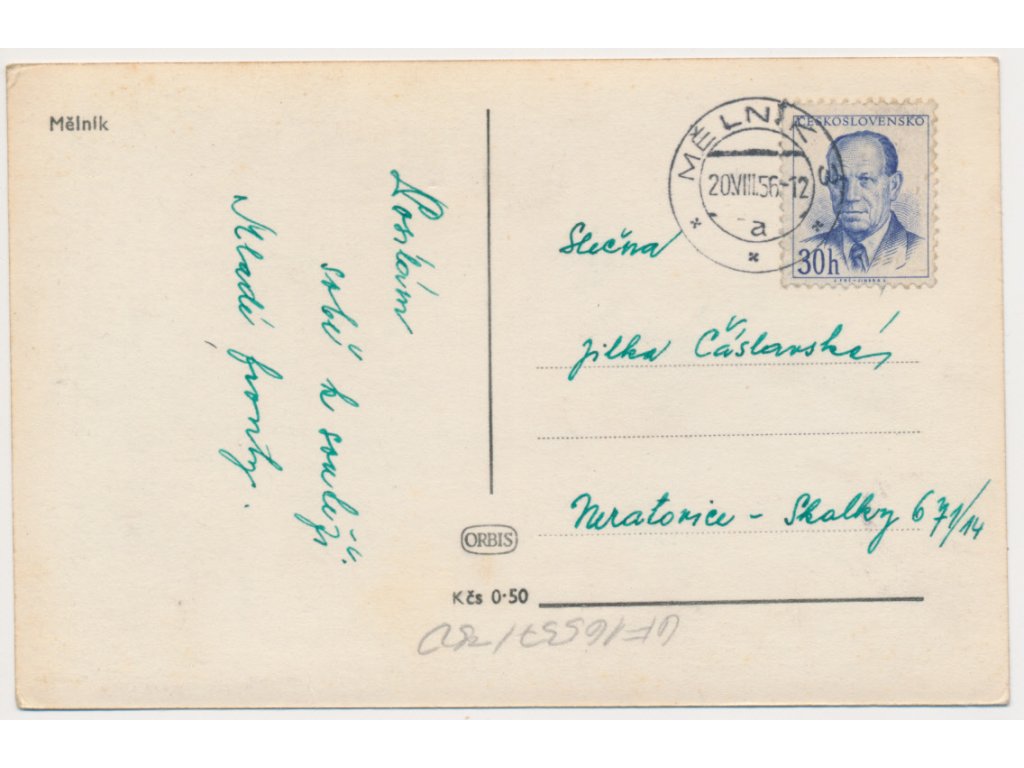 Mělník
Posílám
sobě k soutěži č.
Mladé fronty.
MĚLNÍK 3
20.VIII.56-12
a
ČESKOSLOVENSKO
30h
Slečna
Jilka Čáslavská,
Neratovice - Skalky 671/14
ORBIS
Kčs 0·50